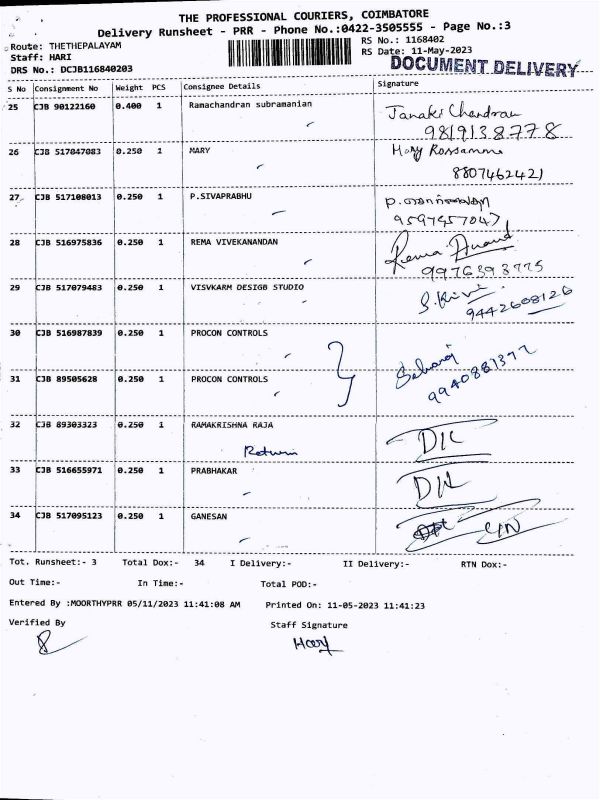 THE PROFESSIONAL COURIERS, COIMBATORE
Delivery Runsheet - PRR - Phone No.:0422-3505555 - Page No.:3
Route: THETHEPALAYAM
RS No.: 1168402
Staff: HARI
RS Date: 11-May-2023
DRS No.: DCJB116840203
DOCUMENT DELIVERY
S No Consignment No Weight PCS Consignee Details Signature
25 CJB 90122160 0.400 1 Ramachandran subramanian Janaki Chandran
9819138778
26 CJB 517047083 0.250 1 MARY Mary Rosamma
8807462421
27 CJB 517108013 0.250 1 P.SIVAPRABHU
9597457047
28 CJB 516975836 0.250 1 REMA VIVEKANANDAN Rema Anand
9976393775
29 CJB 517079483 0.250 1 VISVKARM DESIGB STUDIO
9442608126
30 CJB 516987839 0.250 1 PROCON CONTROLS
9940881377
31 CJB 89505628 0.250 1 PROCON CONTROLS
32 CJB 89303323 0.250 1 RAMAKRISHNA RAJA
Return
33 CJB 516655971 0.250 1 PRABHAKAR
34 CJB 517095123 0.250 1 GANESAN
Tot. Runsheet:- 3 Total Dox:- 34 I Delivery:- II Delivery:- RTN Dox:-
Out Time:- In Time:- Total POD:-
Entered By :MOORTHYPRR 05/11/2023 11:41:08 AM Printed On: 11-05-2023 11:41:23
Verified By Staff Signature